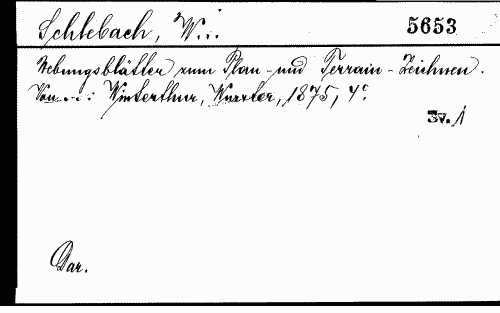 Schlebach, W.
5653
Uebungsblätter zum Plan- und Terrain-Zeichnen.
Von...: Winterthur, Wurster, 1875, 4°.
Dar.